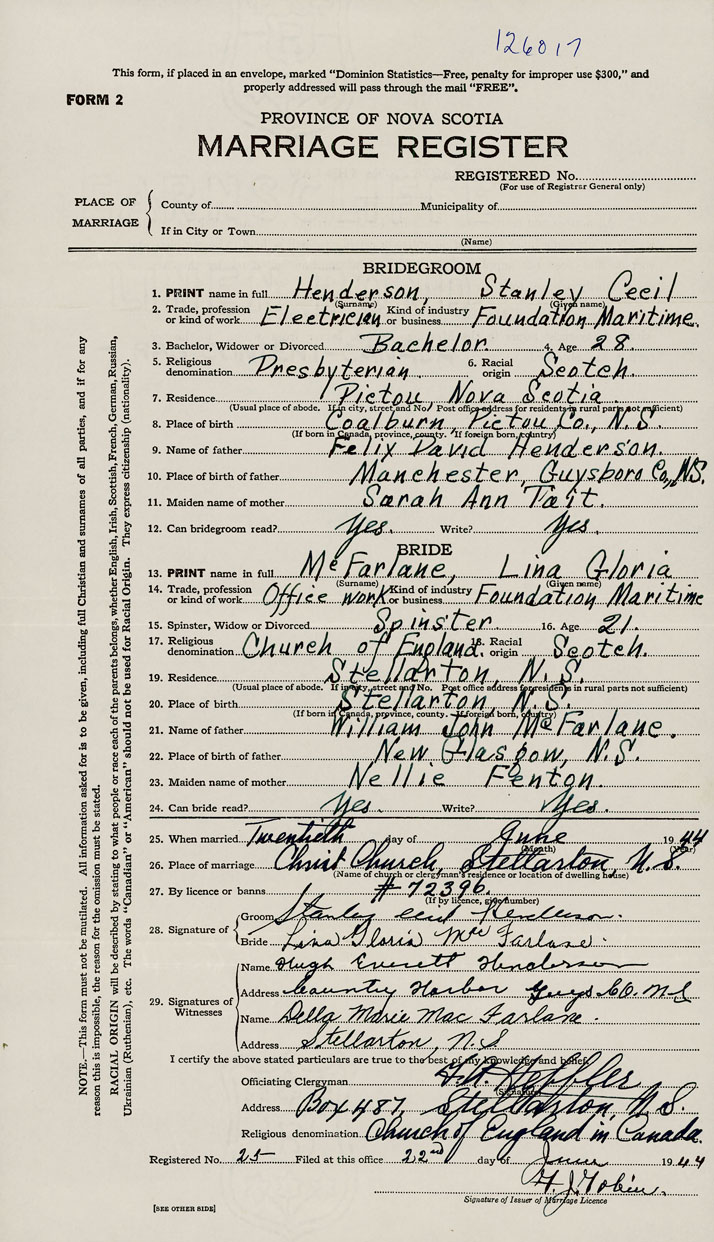 126017
This form, if placed in an envelope, marked "Dominion Statistics—Free, penalty for improper use $300," and
properly addressed will pass through the mail "FREE".
FORM 2
PROVINCE OF NOVA SCOTIA
MARRIAGE REGISTER
REGISTERED No.
(For use of Registrar General only)
PLACE OF MARRIAGE
County of Municipality of
If in City or Town
(Name)
BRIDEGROOM
1. PRINT name in full Henderson, Stanley Cecil
(Surname) (Given name)
2. Trade, profession or kind of work Electrician Kind of industry or business Foundation Maritime.
3. Bachelor, Widower or Divorced Bachelor. 4. Age 28.
5. Religious denomination Presbyterian 6. Racial origin Scotch.
7. Residence Pictou, Nova Scotia
(Usual place of abode. If in city, street and No. Post office address for residents in rural parts not sufficient)
8. Place of birth Coalburn, Pictou Co., N.S.
(If born in Canada, province, county. If foreign born, country)
9. Name of father Felix David Henderson.
10. Place of birth of father Manchester, Guysboro Co., N.S.
11. Maiden name of mother Sarah Ann Tait.
12. Can bridegroom read? Yes. Write? Yes.
BRIDE
13. PRINT name in full McFarlane, Lina Gloria
(Surname) (Given name)
14. Trade, profession or kind of work Office work Kind of industry or business Foundation Maritime
15. Spinster, Widow or Divorced Spinster 16. Age 21.
17. Religious denomination Church of England. 18. Racial origin Scotch.
19. Residence Stellarton, N.S.
(Usual place of abode. If in city, street and No. Post office address for residents in rural parts not sufficient)
20. Place of birth Stellarton, N.S.
(If born in Canada, province, county. If foreign born, country)
21. Name of father William John McFarlane.
22. Place of birth of father New Glasgow, N.S.
23. Maiden name of mother Nellie Fenton.
24. Can bride read? Yes. Write? Yes.
25. When married Twentieth day of June 1944
(Month) (Year)
26. Place of marriage Christ Church, Stellarton, N.S.
(Name of church or clergyman's residence or location of dwelling house)
27. By licence or banns #72396.
(If by licence, give number)
28. Signature of
Groom Stanley Cecil Henderson.
Bride Lina Gloria MacFarlane.
29. Signatures of Witnesses
Name Hugh Everett Henderson
Address Country Harbor Guys. Co. N.S
Name Della Marie MacFarlane.
Address Stellarton, N.S
I certify the above stated particulars are true to the best of my knowledge and belief.
Officiating Clergyman
(Signature)
Address Box 487, Stellarton, N.S.
Religious denomination Church of England in Canada.
Registered No. 25 Filed at this office 22nd day of June 1944
Signature of Issuer of Marriage Licence
[SEE OTHER SIDE]
NOTE.—This form must not be mutilated. All information asked for is to be given, including full Christian and surnames of all parties, and if for any
reason this is impossible, the reason for the omission must be stated.
RACIAL ORIGIN will be described by stating to what people or race each of the parents belongs, whether English, Irish, Scottish, French, German, Russian,
Ukrainian (Ruthenian), etc. The words "Canadian" or "American" should not be used for Racial Origin. They express citizenship (nationality).